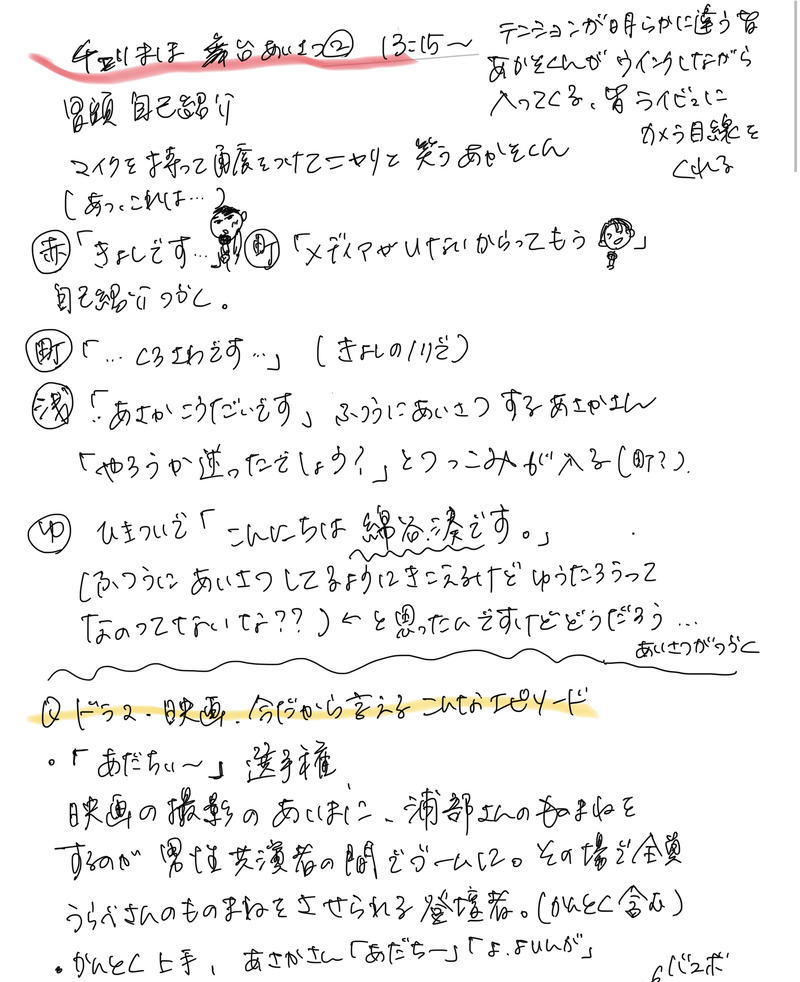 チェリまほ 舞台あいさつ② 13:15〜
テンションが明らかに違う皆
あかそくんが ウインクしながら
入ってくる、皆 ライビュに
カメラ目線を
くれる
冒頭 自己紹介
マイクを持って角度をつけてニヤリと 笑う あかそくん
(あっ、これは…)
赤「きよしです…」町「メディアがいないからってもう」
自己紹介つづく。
町「…くろさわです…」(きよしのノリで)
浅「あさかこうだいです」ふつうにあいさつするあさかさん
「やろうか迷ったでしょう?」とつっこみが入る(町?)
ゆ ひきついで「こんにちは 綿谷湊です。」
(ふつうに あいさつしてるようにきこえるけど ゆうたろうって
なのってないな??)←と思ったんですけどどうだろう…
あいさつがつづく
Q ドラマ・映画、今だから言える こんなエピソード
・「あだちぃ〜」選手権
映画の撮影のあいまに、浦部さんのものまねを
するのが 男性共演者の間でブームに。その場で全員
うらべさんのものまねをさせられる登壇者。(かんとく含む)
・かんとく上手、あさかさん「あだちー」「よ、よいんが」